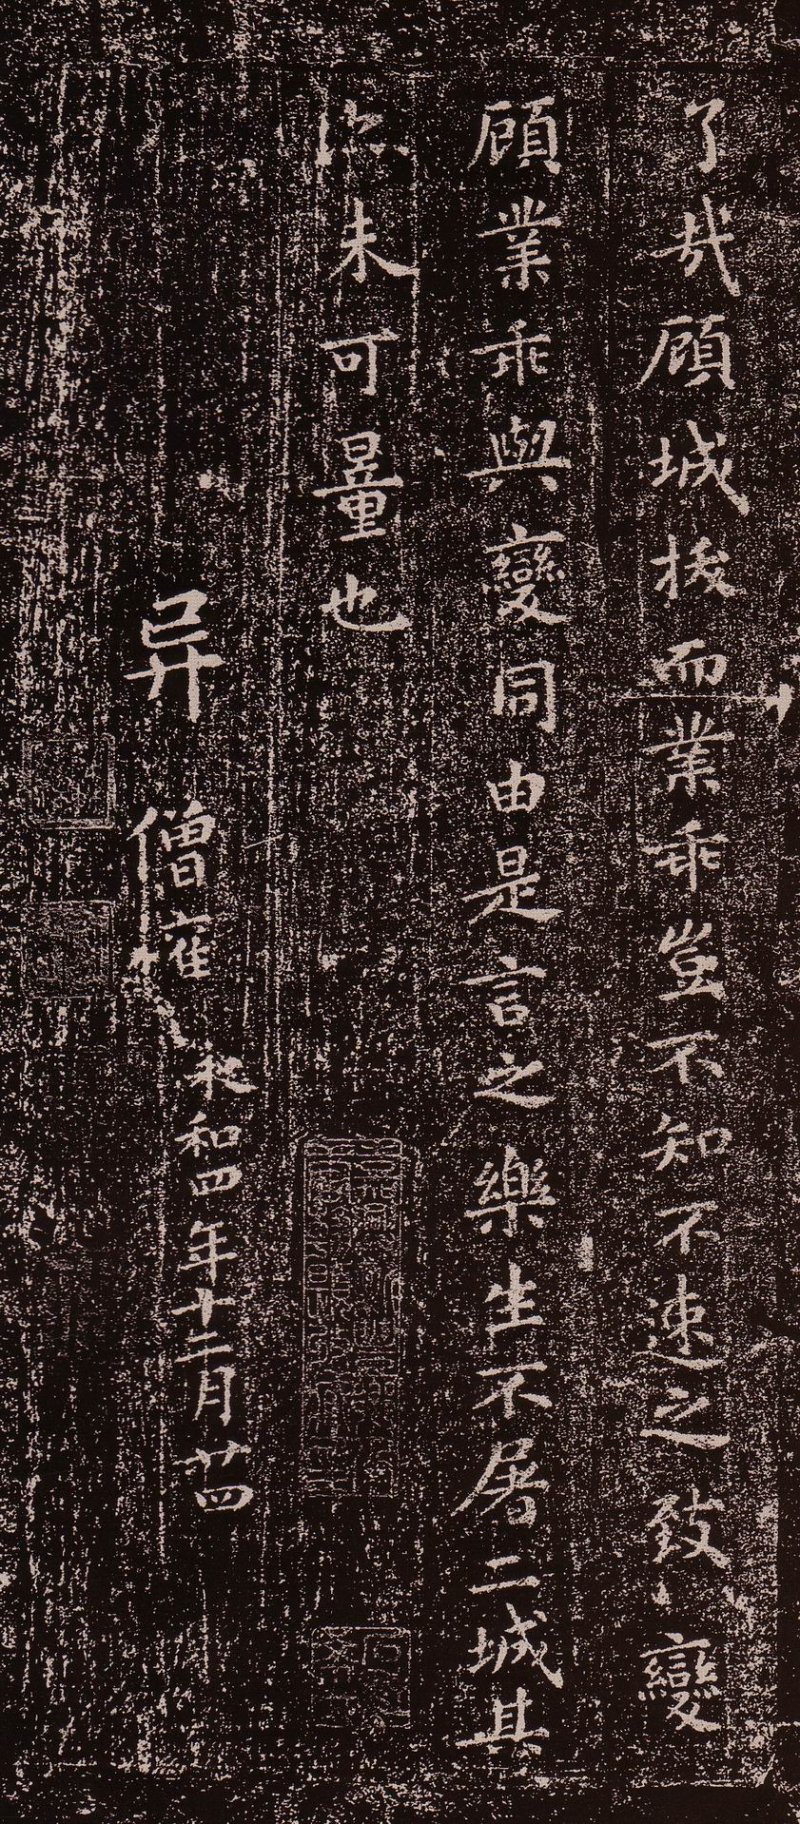 了哉顧城拔而業乖豈不知不速之致變
顧業乖與變同由是言之樂生不屠二城其
未可量也
异 僧權
永和四年十二月廿四